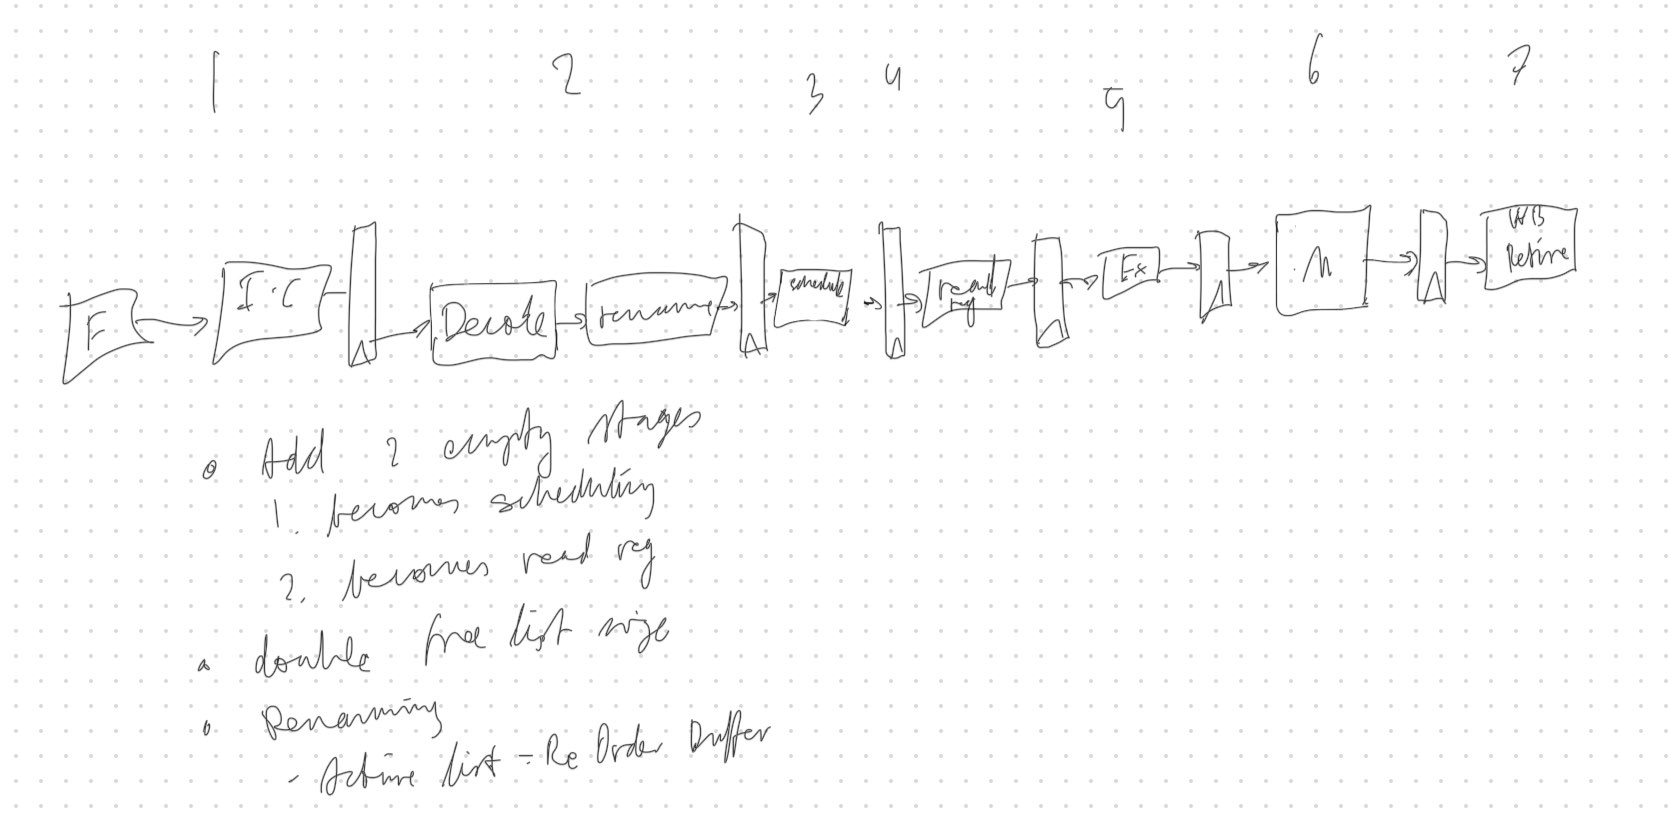 1 2 3 4 5 6 7
F
I.C
Decode
rename
schedule
read
reg
Ex
M
WB
Retire
Add 2 empty stages
1. becomes scheduling
2. becomes read reg
double free list size
Renaming
- Active list = Re Order Buffer